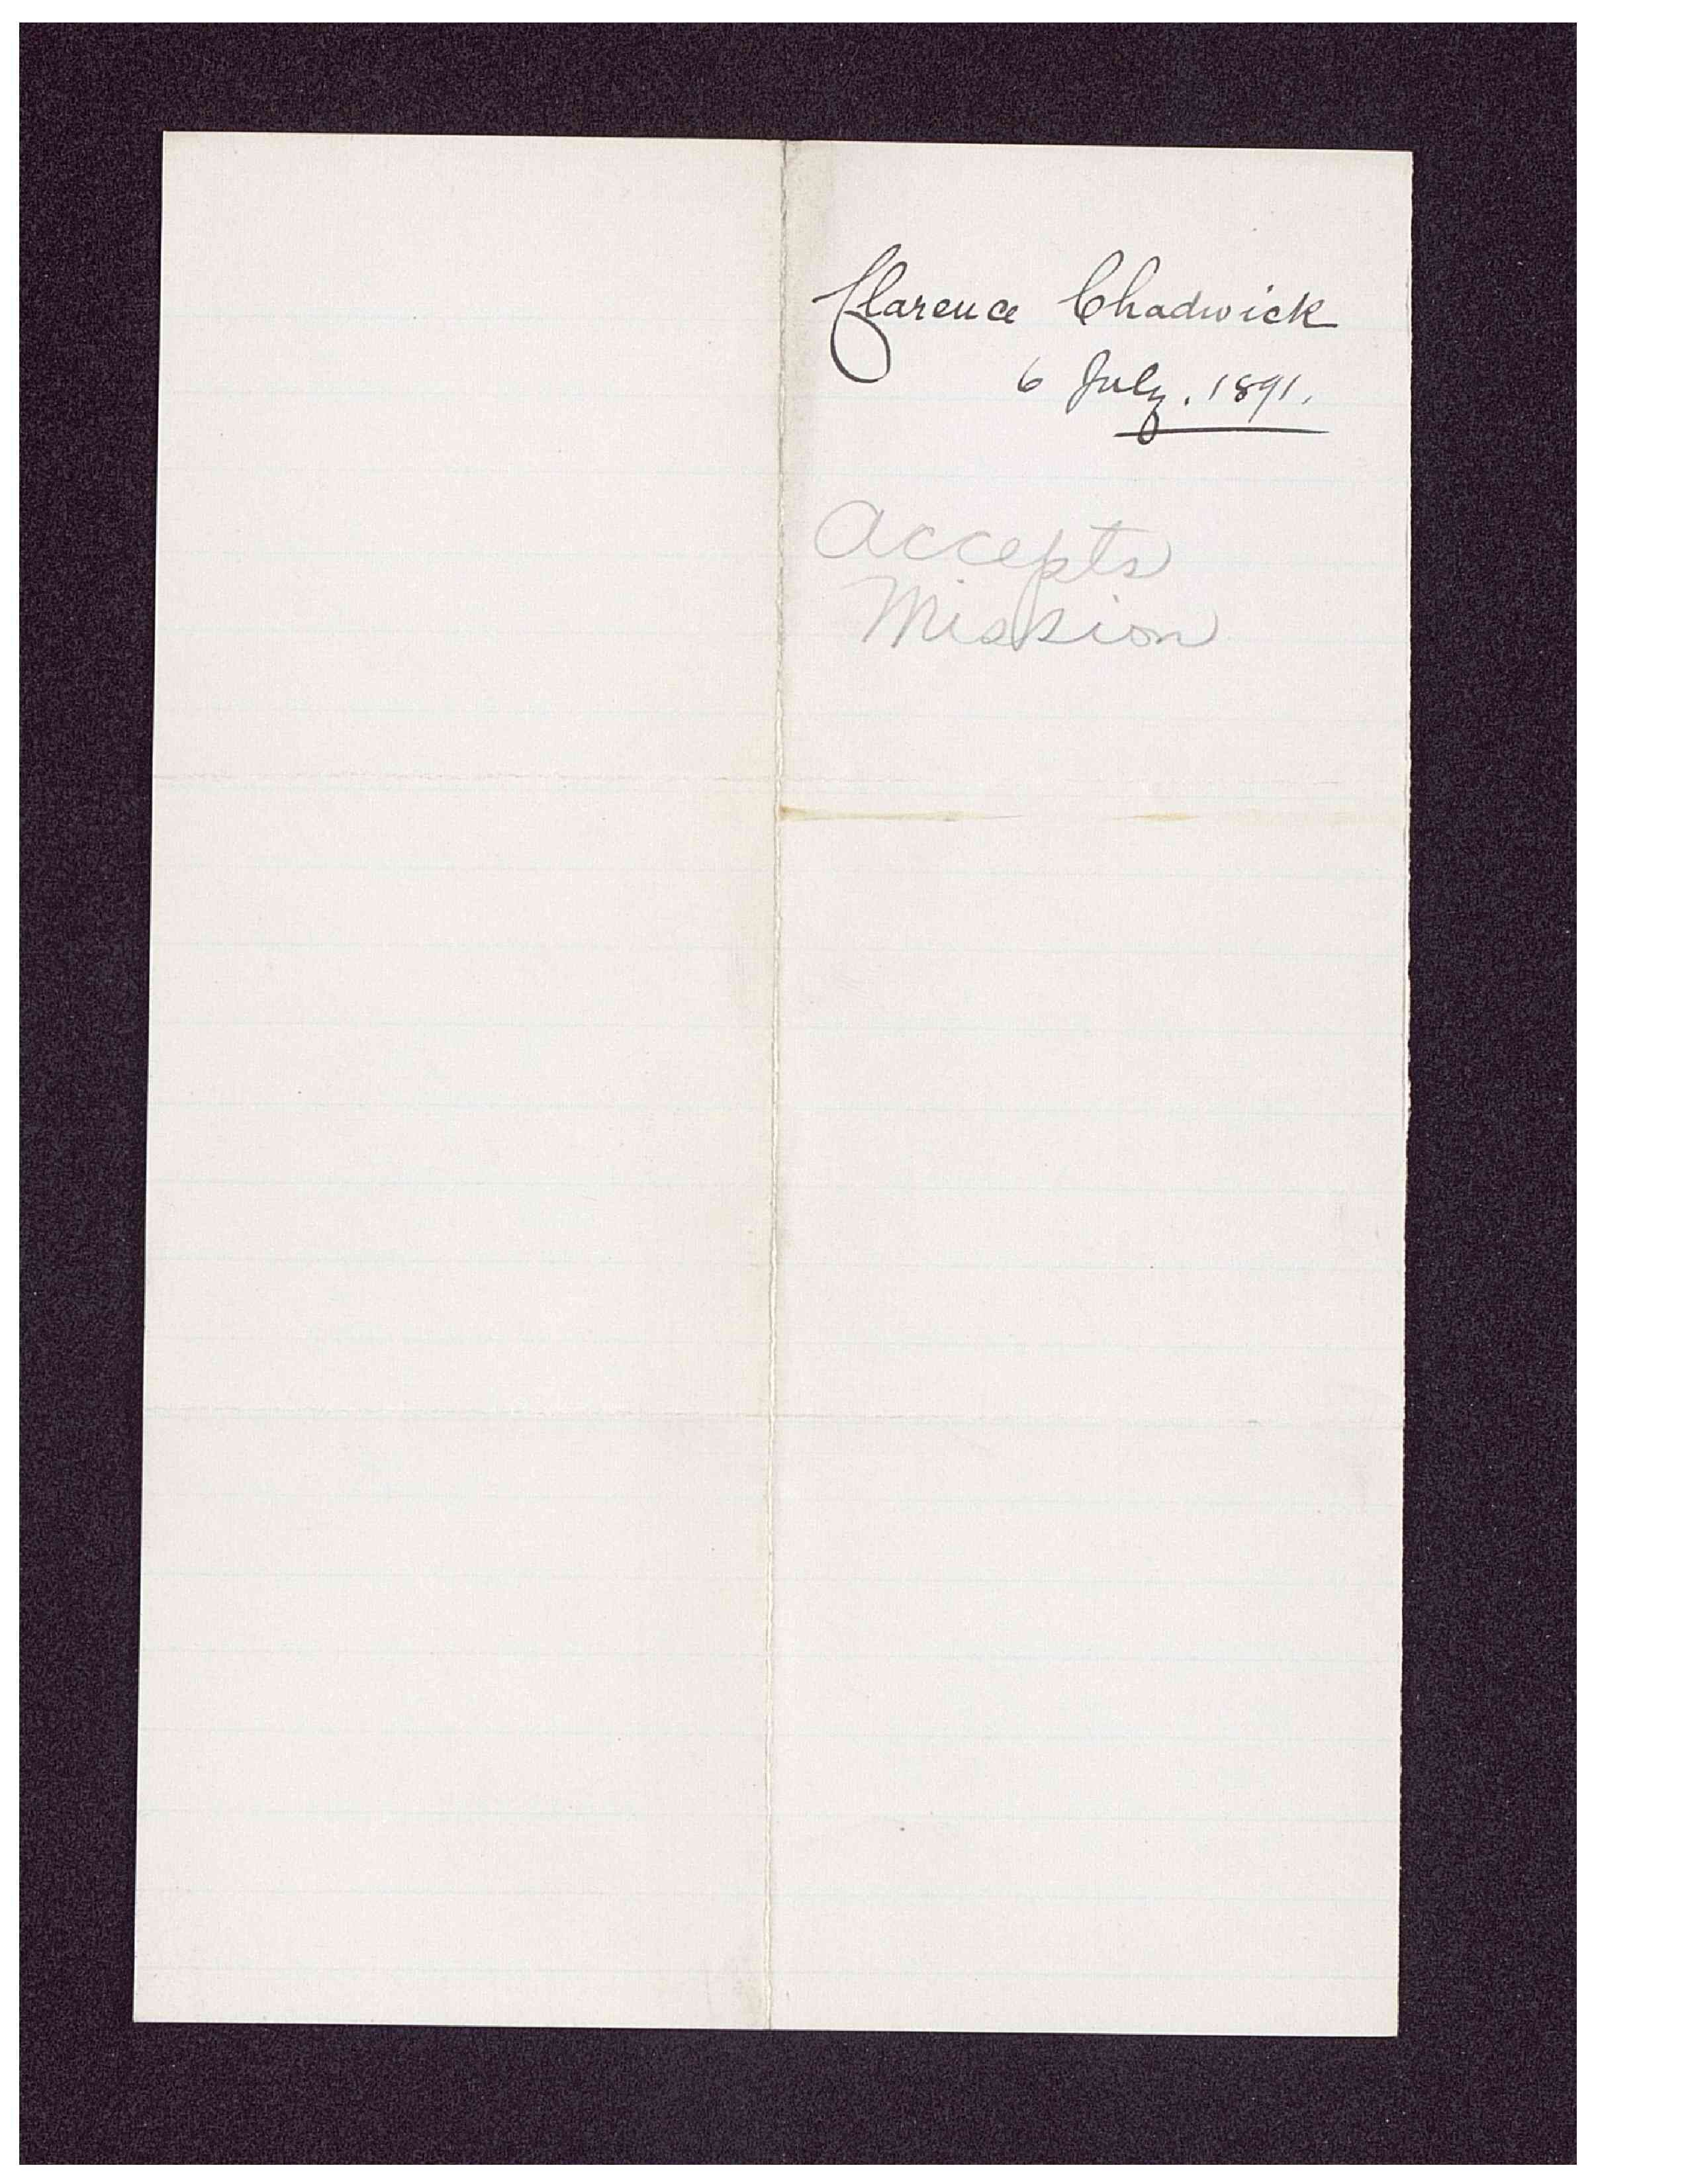 Clarence Chadwick
6 July. 1891.
Accepts
Mission